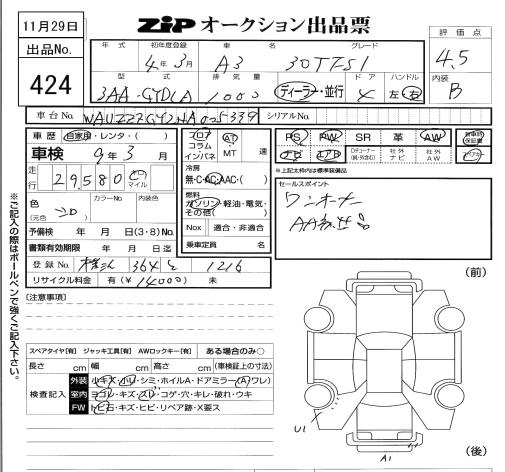 11月29日
ZIP オークション出品票
出品No.
424
評価点
4.5
内装
B
年式 初年度登録 車名 グレード
4年3月 A3 30TFSI
型式 排気量 ドア ハンドル
3AA-GYDLA 1000 ディーラー・並行 左・右
車台No. シリアルNo.
車歴 自家用・レンタ・( )
車検 9年3月
走行 29580 キロ マイル
色 (元色) カラーNo. 内装色
予備検 年 月 日(3・8)No.
書類有効期限 年 月 日迄
登録No. 364 1216
リサイクル料金 有(¥14000) 未
フロア コラム インパネ
AT MT 速
冷房
無・C・AC・AAC・( )
燃料
ガソリン・軽油・電気・その他( )
Nox 適合・非適合
乗車定員 名
PS PW SR 革 AW
ナビ エアB Dチューナー 社外ナビ 社外AW
*上記太枠内は標準装備品
セールスポイント
ワンオーナー
[注意事項]
※ご記入の際はボールペンで強くご記入下さい。
スペアタイヤ[有] ジャッキ工具[有] AWロックキー[有] ある場合のみ○
長さ cm 幅 cm 高さ cm (車検証上の寸法)
検査記入
外装 小キズ・小凹・シミ・ホイルA・ドアミラー(A)ワレ)
室内 ヨゴレ・キズ・スレ・コゲ・穴・キレ・破れ・ウキ
FW トビ石・キズ・ヒビ・リペア跡・X要ス
(前)
U1
A1
(後)